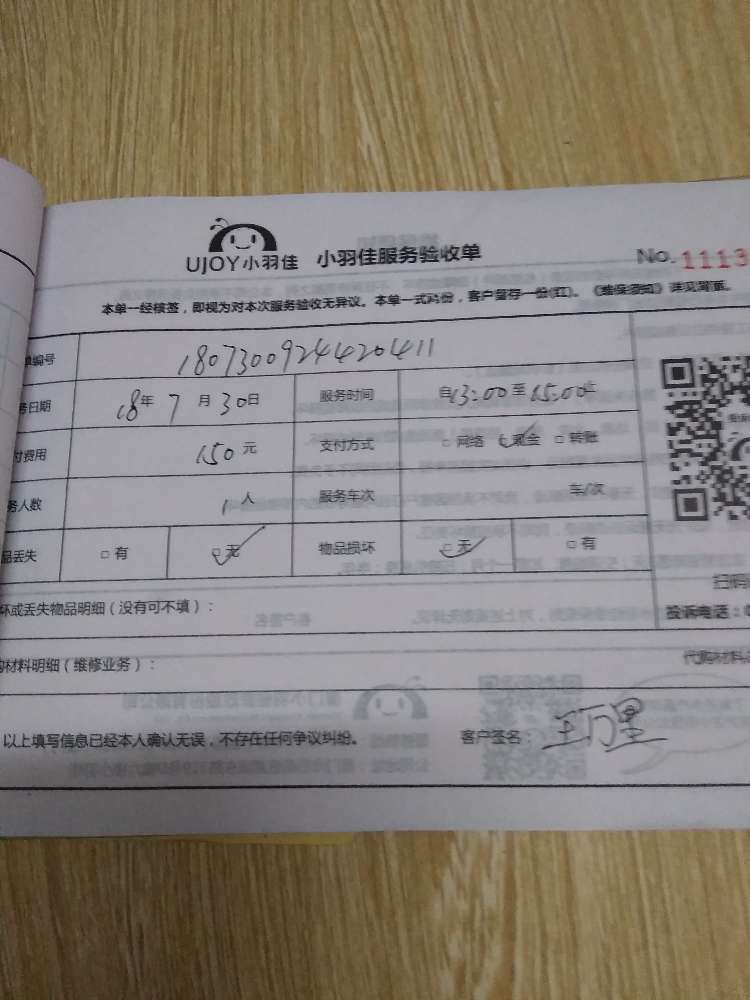 UJOY小羽佳 小羽佳服务验收单 No. 1113
本单一经核签，即视为对本次服务验收无异议。本单一式两份，客户留存一份(红)。《维保须知》详见背面。
单编号 180730092442041 1
务日期 18年 7月 30日 服务时间 自13:00至15:00止
付费用 150元 支付方式 □网络 □现金 □转账
务人数 1人 服务车次 车/次
品丢失 □有 □无 物品损坏 □无 □有
坏或丢失物品明细（没有可不填）： 扫码
投诉电话：0
购材料明细（维修业务）： 代购材料
以上填写信息已经本人确认无误，不存在任何争议纠纷。 客户签名：王万里